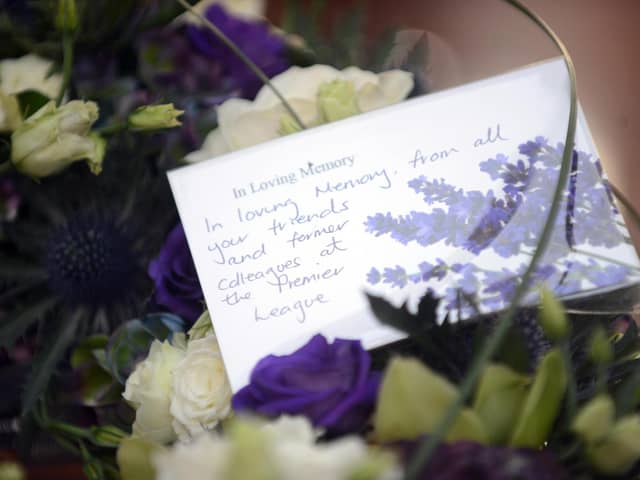 In Loving Memory
In loving Memory, from all
your friends
and former
colleagues at
the Premier
League